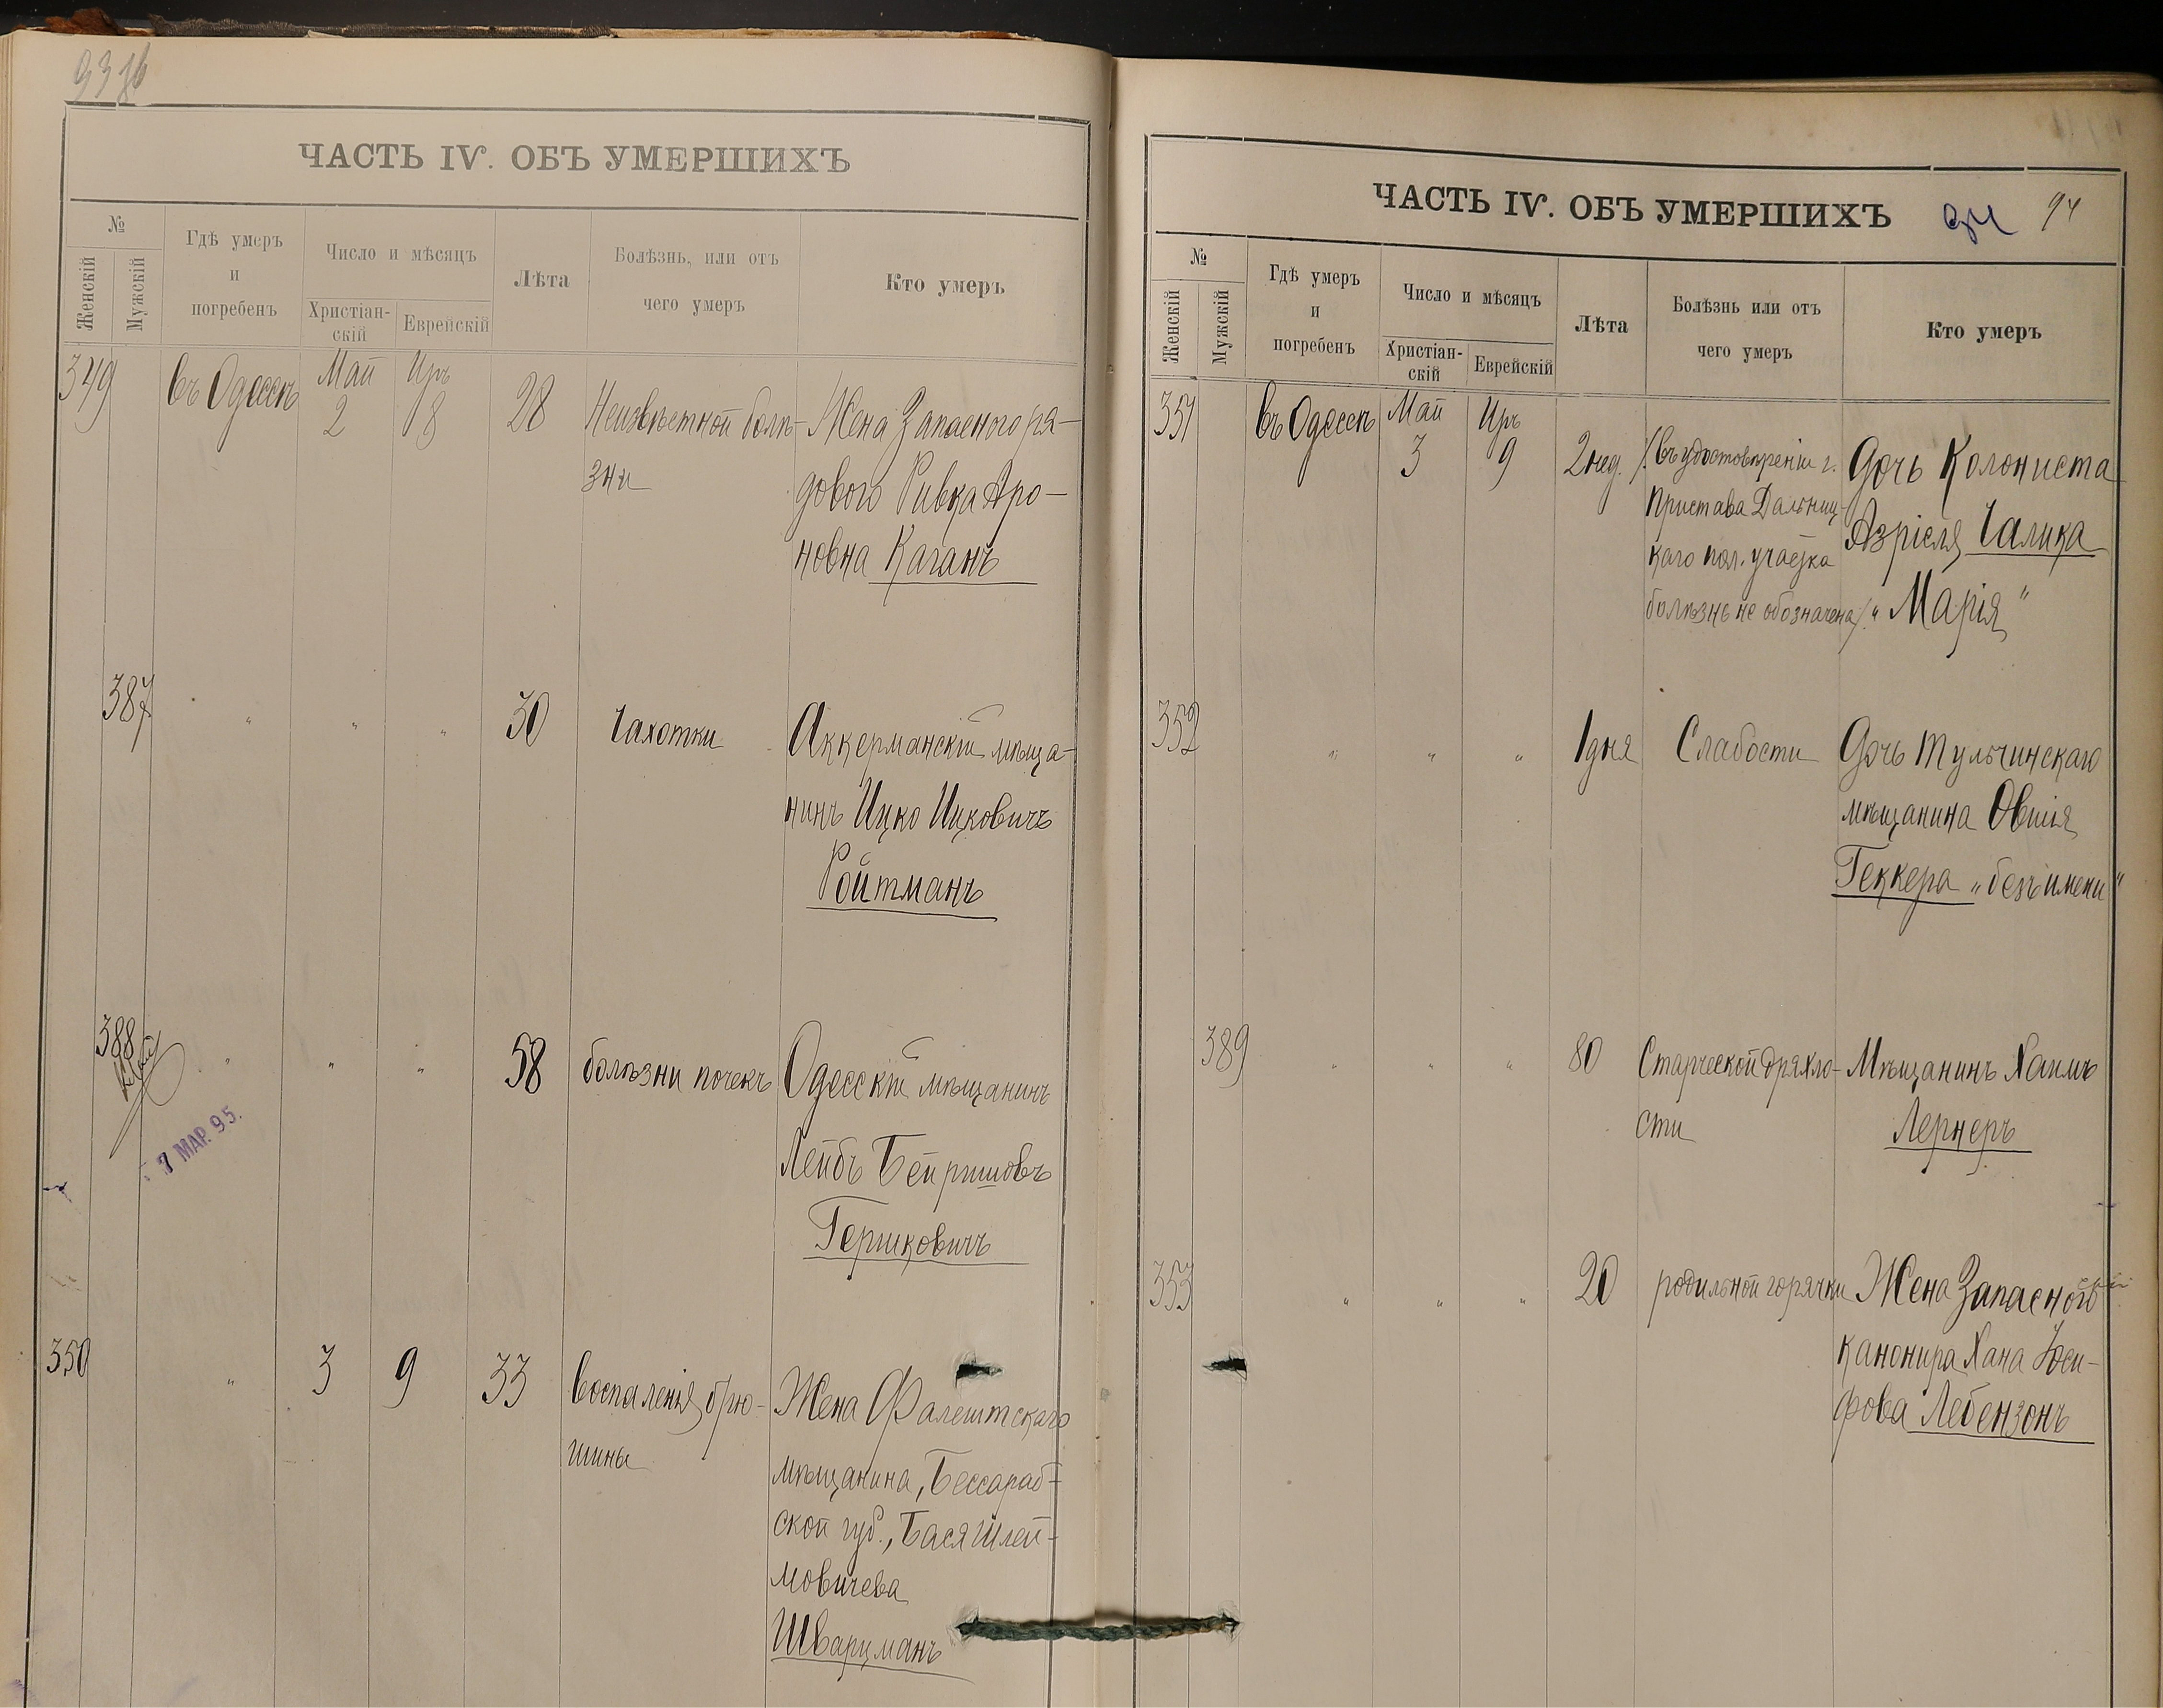 ЧАСТЬ IV. ОБЪ УМЕРШИХЪ
№
Женскій
Мужскій
Гдѣ умеръ
и
погребенъ
Число и мѣсяцъ
Христіан-
скій
Еврейскій
Лѣта
Болѣзнь, или отъ
чего умеръ
Кто умеръ
349
въ Одессѣ
Май
2
Иръ
8
28
Неизвѣстной болѣ-
зни
Жена Запасного ря-
дового Ривка Аро-
новна Каганъ
387
" " "
30
Чахотки
Аккерманскій мѣща-
нинъ Ицко Ицковичъ
Ройтманъ
388
" " "
58
болѣзни почекъ
Одесскій мѣщанинъ
Лейбъ Бейришовъ
Гершковичъ
7 МАР. 95.
350
"
3
9
33
Воспаленія брю-
шины
Жена Фалештскаго
мѣщанина, Бессараб-
ской губ., Бася Шлей-
мовичева
Шварцманъ
ЧАСТЬ IV. ОБЪ УМЕРШИХЪ
94
94
№
Женскій
Мужскій
Гдѣ умеръ
и
погребенъ
Число и мѣсяцъ
Христіан-
скій
Еврейскій
Лѣта
Болѣзнь или отъ
чего умеръ
Кто умеръ
351
въ Одессѣ
Май
3
Иръ
9
2 нед.
/: въ удостовѣреніи г.
Пристава Дальниц-
каго пол. участка
болѣзнь не обозначена /.
Дочь Колониста
Азріеля Чалика
"Марія"
352
" " "
1 дня
Слабости
Дочь Тульчинскаго
мѣщанина Овшія
Геккера "безъ имени"
389
" " "
80
Старческой дряхло-
сти
Мѣщанинъ Хаимъ
Лернеръ
353
" " "
20
родильной горячки
Жена Запасного
канонира Хана Іоси-
фова Лебензонъ